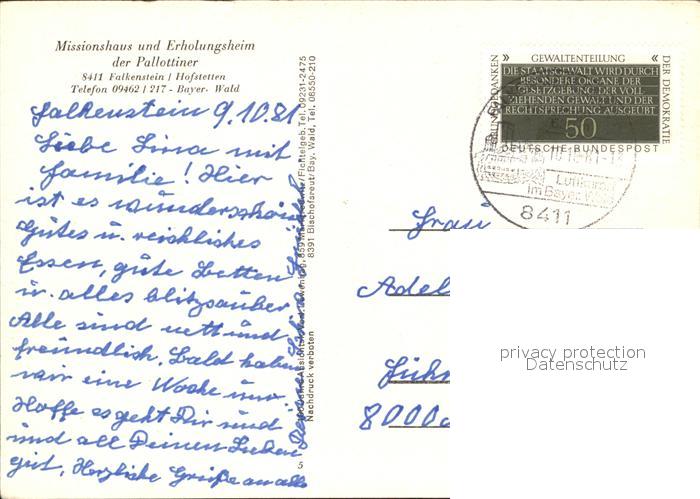 Missionshaus und Erholungsheim
der Pallottiner
8411 Falkenstein / Hofstetten
Telefon 09462 / 217 - Bayer. Wald
Falkenstein 9.10.81
Liebe Lina mit
Familie! Hier
ist es wunderschön
gutes u. reichliches
Essen, gute Betten
u. alles blitzsauber
Alle sind nett und
freundlich. Bald haben
wir eine Woche um.
Hoffe es geht Dir und
und all Deinen Lieben
gut, Herzliche Grüße an alle
Fichtelgeb. Tel. 09231-2475
8391 Bischofsreut/Bay. Wald, Tel. 08550-210
Nachdruck verboten
5
» GEWALTENTEILUNG «
GRUNDGEDANKEN
DER DEMOKRATIE
DIE STAATSGEWALT WIRD DURCH
BESONDERE ORGANE DER
GESETZGEBUNG DER VOLL
ZIEHENDEN GEWALT UND DER
RECHTSPRECHUNG AUSGEÜBT
50
DEUTSCHE BUNDESPOST
Luftkurort
im Bayer. Wald
8411
Frau
Adel
8000
privacy protection
Datenschutz